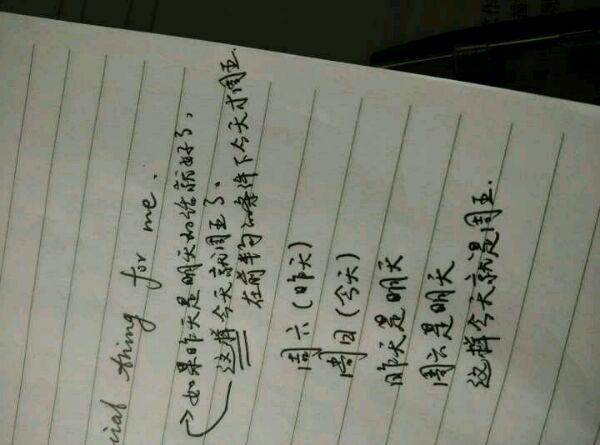 cial thing for me.
如果昨天是明天的话就好了,
这样今天就周五了.
在前半句的条件下今天才周五.
周六(昨天)
周日(今天)
昨天是明天
周六是明天
这样今天就是周五.